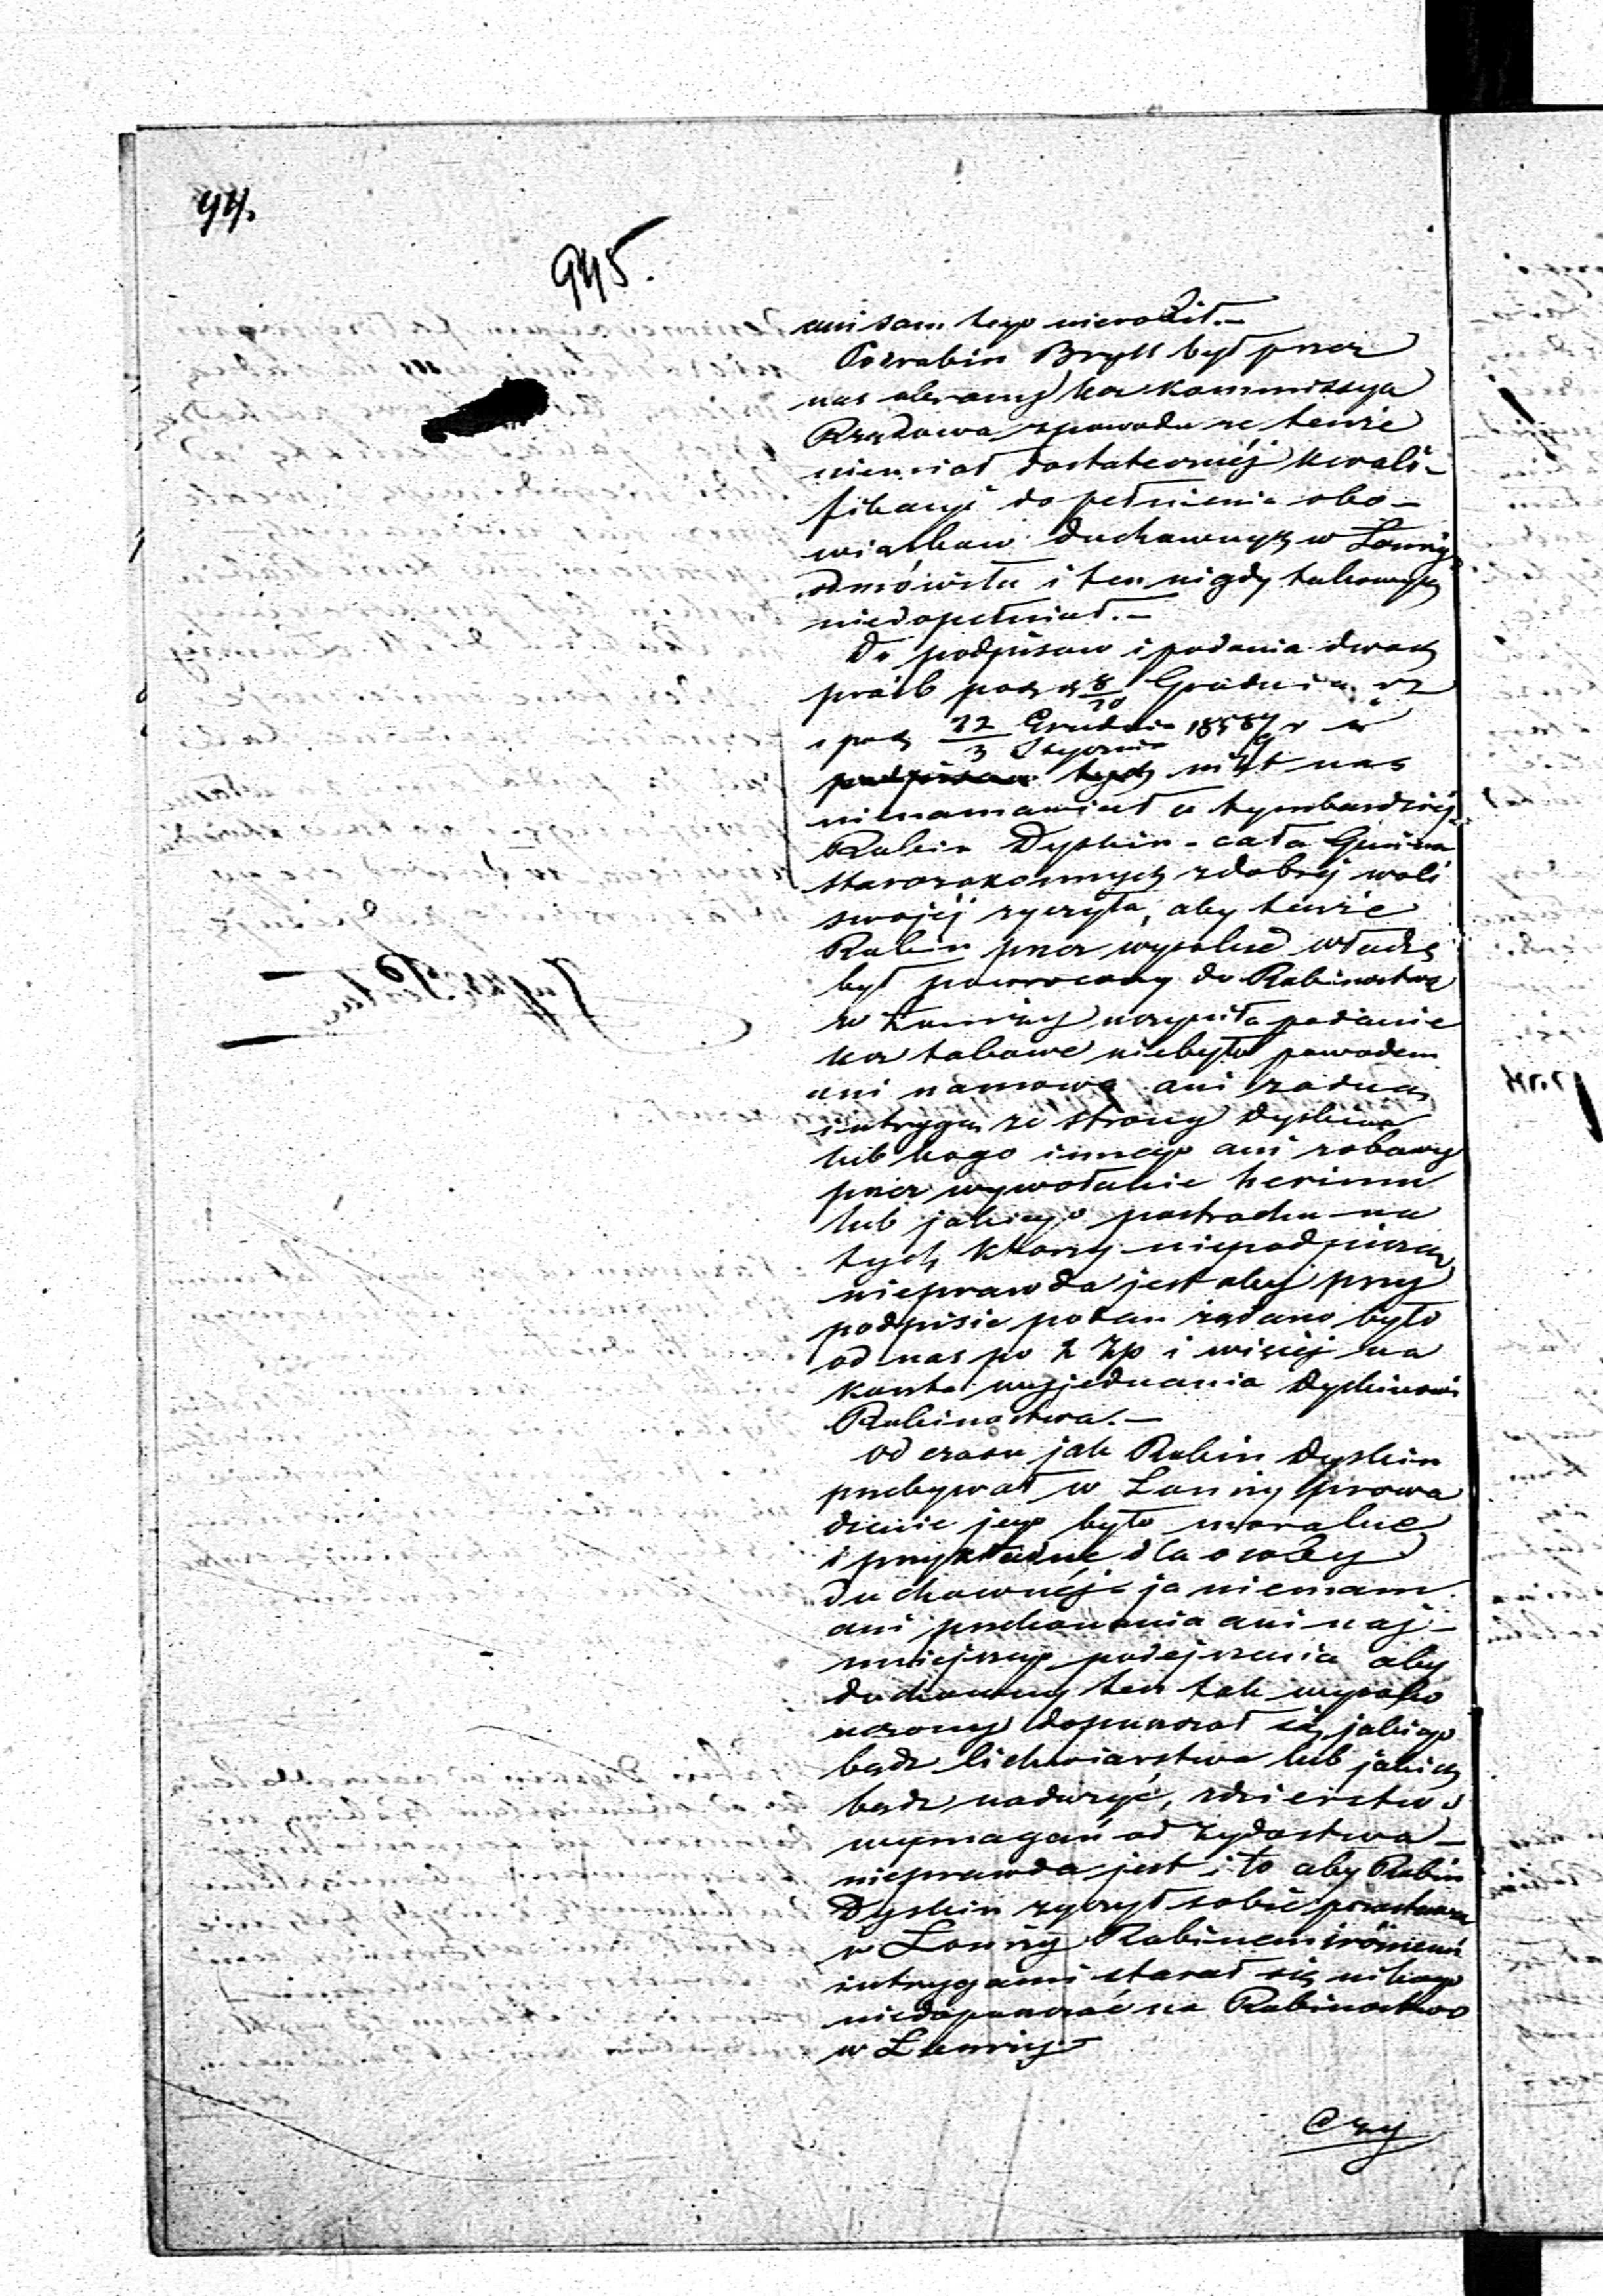 94.
945.
ani sam tego nierobił.-
Podrabin Bryll był przez
nas obrany lecz Kommissya
Rządowa zpowodu ze tenże
niemiał dostatecznéj kwali-
fikacyi do pełnienia obo-
wiązkow duchownych w Łomży
odmówiła i ten nigdy takowych
niedopełniał.-
Do podpisow i podania dwoch
próśb pod d 8/20 Grudnia rz
i pod 22/3 Grudnia/Stycznia 1858/9 r
podpisow tych nikt nas
nienamawiał a tymbardziéj
Rabin Dyskin - cała Gmina
starozakonnych zdobréj woli
swojéj życzyła, aby tenże
Rabin przez wysokie władze
był powrocony do Rabinostwa
w Łomży, uczyniła podanie
lecz takowe niebyło powodem
ani namową ani żadną
intrygą ze strony Dyskina
lub kogo innego ani
przez wywołanie herimu
lub jakiego postrachu na
tych ktorzy niepodpiszą
nieprawda jest aby przy
podpisie podan żądano było
od nas po 2 Zp i więcéj na
koszta wyjednania Dyskinowi
Rabinostwa.-
Od czasu jak Rabin Dyskin
przebywał w Łomży prowa
dzenie jego było moralne
i przykładne dla osoby
duchownéj - ja niemam
ani przekonania ani naj-
mniejszego podejrzenia aby
duchowny ten tak wysoko
uczony dopuszczał się jakiego
bądz lichwiarstwa lub jakich
bądz nadużyć, zdzierstw i
wymagań od żydostwa -
nieprawda jest i to aby Rabin
Dyskin życzył sobie pozostawać
w Łomży Rabinem i różnemi
intrygami starał się nikogo
niedopuszczać na Rabinostwo
w Łomży -
Czy